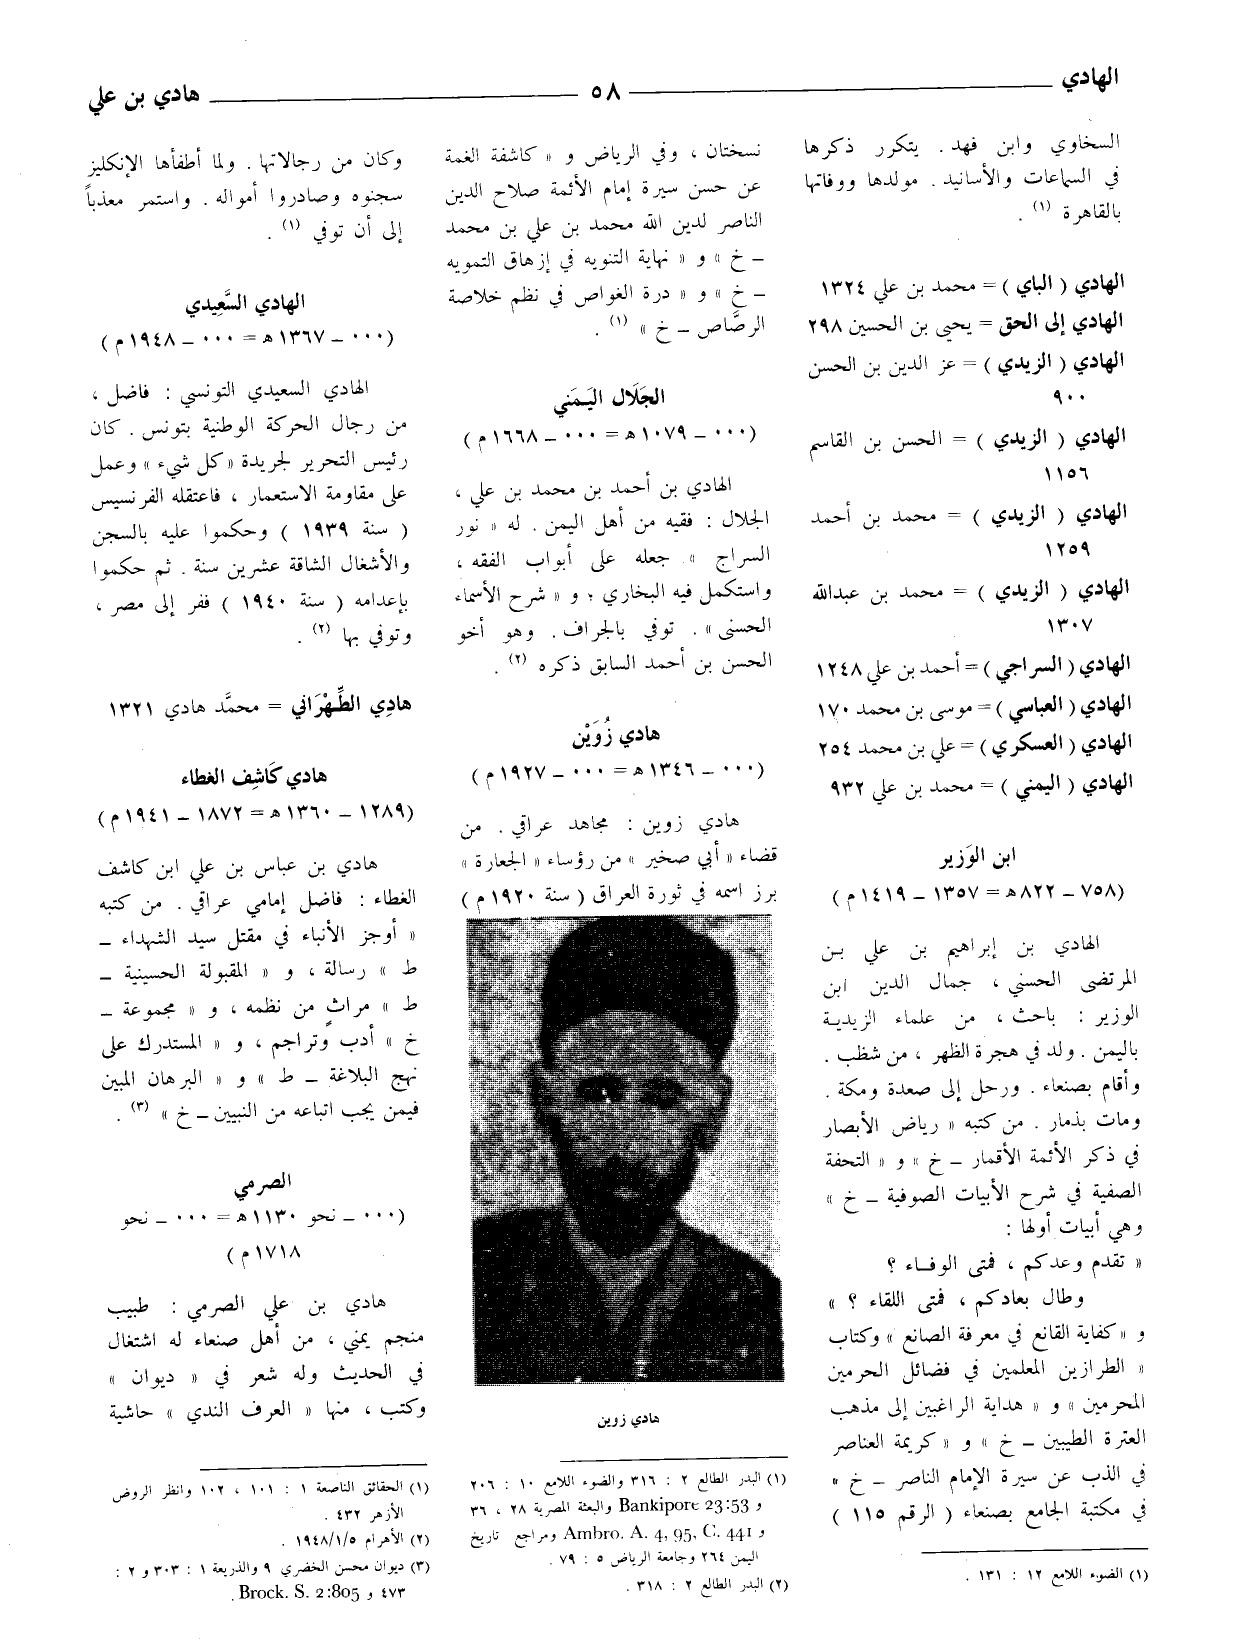 الهادي
٥٨
هادي بن علي
السخاوي وابن فهد. يتكرر ذكرها
في السماعات والأسانيد. مولدها ووفاتها
بالقاهرة (١) .
الهادي ( الباي ) = محمد بن علي ١٣٢٤
الهادي إلى الحق = يحيى بن الحسين ٢٩٨
الهادي ( الزيدي ) = عز الدين بن الحسن
٩٠٠
الهادي ( الزيدي ) = الحسن بن القاسم
١١٥٦
الهادي ( الزيدي ) = محمد بن أحمد
١٢٥٩
الهادي ( الزيدي ) = محمد بن عبدالله
١٣٠٧
الهادي ( السراجي ) = أحمد بن علي ١٢٤٨
الهادي ( العباسي ) = موسى بن محمد ١٧٠
الهادي ( العسكري ) = علي بن محمد ٢٥٤
الهادي ( اليمني ) = محمد بن علي ٩٣٢
ابن الوَزير
(٧٥٨ – ٨٢٢ هـ = ١٣٥٧ – ١٤١٩ م)
الهادي بن إبراهيم بن علي بن
المرتضى الحسني ، جمال الدين ابن
الوزير : باحث ، من علماء الزيدية
باليمن . ولد في هجرة الظهر ، من شظب .
وأقام بصنعاء . ورحل إلى صعدة ومكة .
ومات بذمار . من كتبه « رياض الأبصار
في ذكر الأئمة الأقمار – خ » و « التحفة
الصفية في شرح الأبيات الصوفية – خ »
وهي أبيات أولها :
« تقدم وعدكم ، فمتى الوفاء ؟
وطال بعادكم ، فمتى اللقاء ؟ »
و « كفاية القانع في معرفة الصانع » وكتاب
« الطرازين المعلمين في فضائل الحرمين
المحرمين » و « هداية الراغبين إلى مذهب
العترة الطيبين – خ » و « كريمة العناصر
في الذب عن سيرة الإمام الناصر – خ »
في مكتبة الجامع بصنعاء ( الرقم ١١٥ )
(١) الضوء اللامع ١٢ : ١٣١ .
نسختان ، وفي الرياض و « كاشفة الغمة
عن حسن سيرة إمام الأئمة صلاح الدين
الناصر لدين الله محمد بن علي بن محمد
– خ » و « نهاية التنويه في إزهاق التمويه
– خ » و « درة الغواص في نظم خلاصة
الرصَّاص – خ » (١) .
الجَلَال اليَمَني
(٠٠٠ – ١٠٧٩ هـ = ٠٠٠ – ١٦٦٨ م)
الهادي بن أحمد بن محمد بن علي ،
الجلال : فقيه من أهل اليمن . له « نور
السراج » جعله على أبواب الفقه ،
واستكمل فيه البخاري ؛ و « شرح الأسماء
الحسنى » . توفي بالجراف . وهو أخو
الحسن بن أحمد السابق ذكره (٢) .
هادي زُوَيْن
(٠٠٠ – ١٣٤٦ هـ = ٠٠٠ – ١٩٢٧ م)
هادي زوين : مجاهد عراقي . من
قضاء « أبي صخير » من رؤساء « الجعارة »
برز اسمه في ثورة العراق ( سنة ١٩٢٠ م )
هادي زوين
(١) البدر الطالع ٢ : ٣١٦ والضوء اللامع ١٠ : ٢٠٦
و Bankipore 23:53 والبعثة المصرية ٢٨ ، ٣٦
و Ambro. A. 4, 95, C. 441 ومراجع تاريخ
اليمن ٢٦٤ وجامعة الرياض ٥ : ٧٩ .
(٢) البدر الطالع ٢ : ٣١٨ .
وكان من رجالاتها . ولما أطفأها الإنكليز
سجنوه وصادروا أمواله . واستمر معذباً
إلى أن توفي (١) .
الهادي السَّعِيدي
(٠٠٠ – ١٣٦٧ هـ = ٠٠٠ – ١٩٤٨ م)
الهادي السعيدي التونسي : فاضل ،
من رجال الحركة الوطنية بتونس . كان
رئيس التحرير لجريدة «كل شيء» وعمل
على مقاومة الاستعمار ، فاعتقله الفرنسيس
( سنة ١٩٣٩ ) وحكموا عليه بالسجن
والأشغال الشاقة عشرين سنة . ثم حكموا
بإعدامه ( سنة ١٩٤٠ ) ففر إلى مصر ،
وتوفي بها (٢) .
هادِي الطِّهْرَاني = محمَّد هادي ١٣٢١
هادي كَاشِف الغطاء
(١٢٨٩ – ١٣٦٠ هـ = ١٨٧٢ – ١٩٤١ م)
هادي بن عباس بن علي ابن كاشف
الغطاء : فاضل إمامي عراقي . من كتبه
« أوجز الأنباء في مقتل سيد الشهداء –
ط » رسالة ، و « المقبولة الحسينية –
ط » مراثٍ من نظمه ، و « مجموعة –
خ » أدب وتراجم ، و « المستدرك على
نهج البلاغة – ط » و « البرهان المبين
فيمن يجب اتباعه من النبيين – خ » (٣) .
الصرمي
(٠٠٠ – نحو ١١٣٠ هـ = ٠٠٠ – نحو
١٧١٨ م)
هادي بن علي الصرمي : طبيب
منجم يمني ، من أهل صنعاء له اشتغال
في الحديث وله شعر في « ديوان »
وكتب ، منها « العرف الندي » حاشية
(١) الحقائق الناصعة ١ : ١٠١ ، ١٠٢ وانظر الروض
الأزهر ٤٣٢ .
(٢) الأهرام ١٩٤٨/١/٥ .
(٣) ديوان محسن الخضري ٩ والذريعة ١ : ٣٠٣ و ٢ :
٤٧٣ و Brock. S. 2:805 .